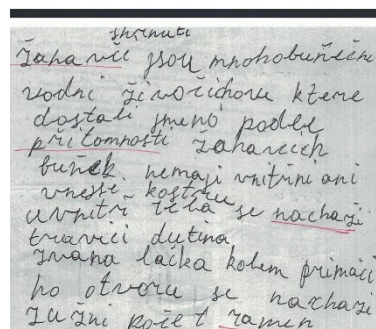 shrnuti
žahavči jsou mnohobuněčni
vodni živočichove ktere
dostali jmeno podle
přitomnosti žahavcich
buněk nemaji vnitřni ani
vnessi kostru
uvnitř těla se nachaži
travici dutina
zvana lačka kolem přimaci
ho otvoru se nachaži
ružni počet ramen